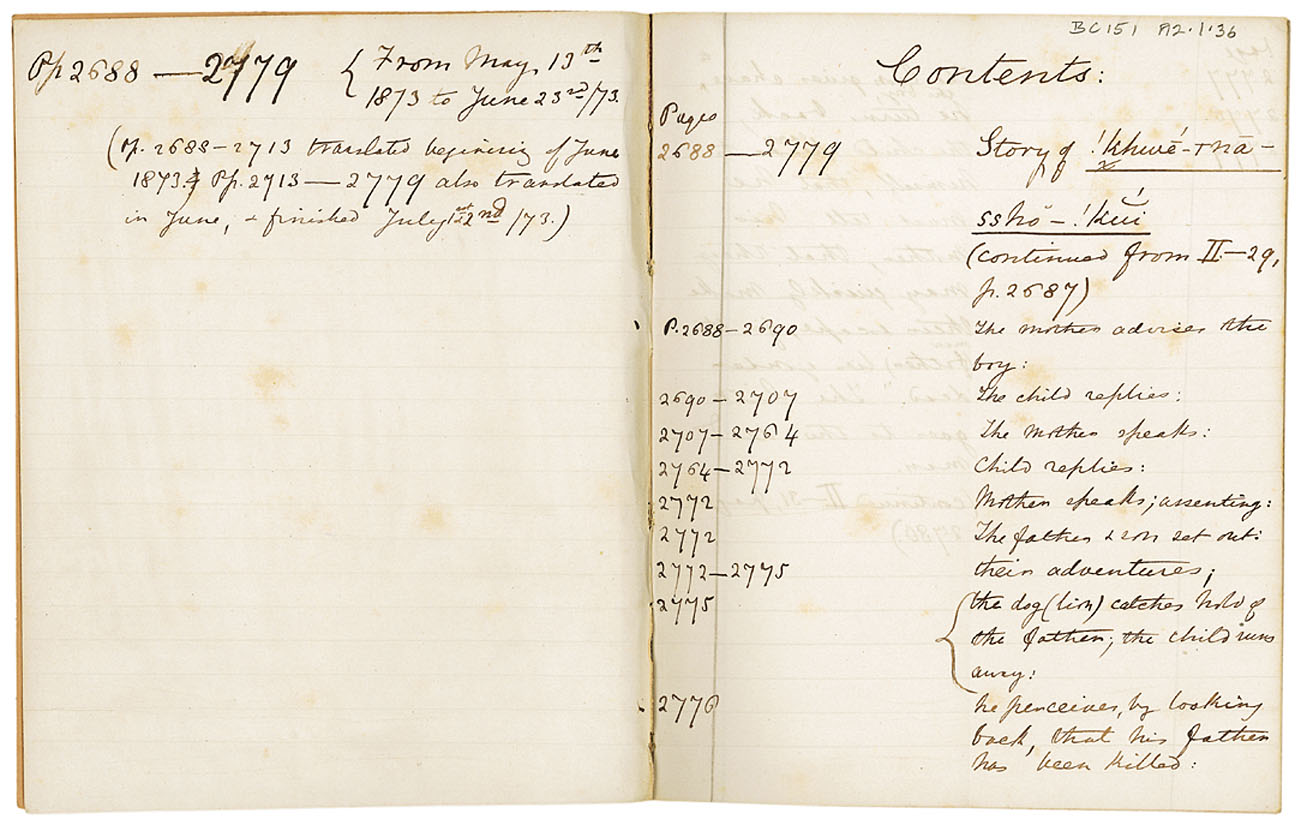 Pp 2688 — 2779 { From May 13th
1873 to June 23rd/73.
(Pp. 2688 – 2713 translated beginning of June
1873. Pp. 2713 — 2779 also translated
in June, & finished July 2nd /73.)
BC151 A2.1.36
Contents:
Pages
2688 — 2779 Story of !khwé-
sshō – !kúi
(continued from II – 29,
p. 2687)
P. 2688 – 2690 The mother advises the
boy:
2690 – 2707 The child replies:
2707 – 2764 The mother speaks:
2764 – 2772 Child replies:
2772 Mother speaks; assenting:
2772 The father & son set out:
2772 – 2775 their adventures;
2775 { the dog (lion) catches hold of
the father; the child runs
away:
2776 he perceives, by looking
back, that his father
has been killed: